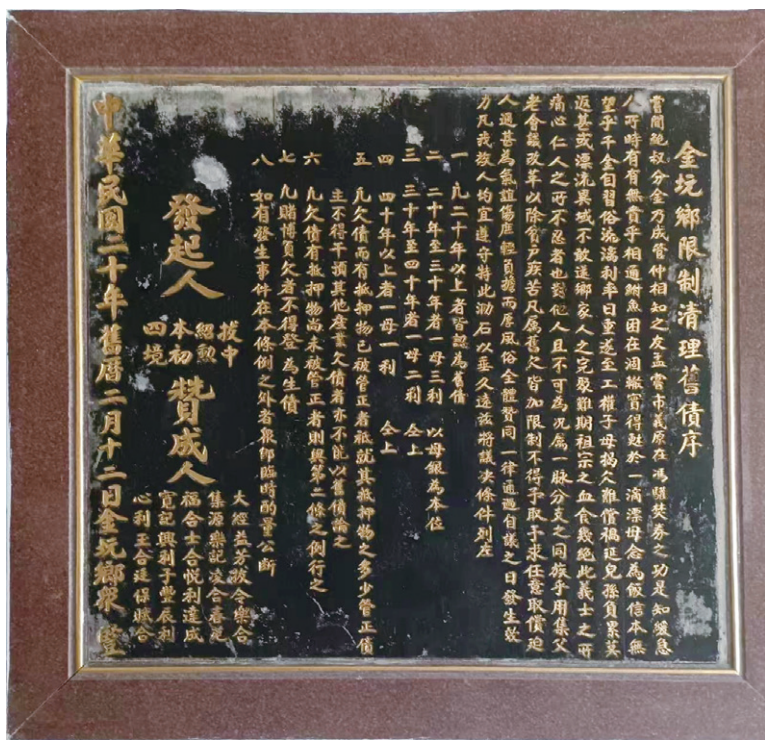 金坑鄉限制清理舊債序
嘗聞鮑叔分金乃成管仲相知之友孟嘗市義原在馮驩焚券之功是知緩急
人所時有有無貴乎相通鮒魚困在涸轍實得甦於一滴漂母念為飯信本無
望乎千金自習俗澆漓利率日重遂至工權子母揭久難償禍延兒孫負累莫
返甚或漂流異域不敢送鄉家人之完聚難期祖宗之血食幾絕此義士之所
痛心仁人之所不忍者也對他人且不可為况屬一脉分支之同族乎用集父
老會議改革以除貧戶疾苦凡屬舊欠皆加限制不得予取予求任意取償迫
人過甚為氣誼傷庶輕負擔而厚風俗全體贊同一律通過自議之日發生效
力凡我族人均宜遵守特此泐石以垂久遠茲將議決條件列左
一 凡二十年以上者皆認為舊債
二 二十年至三十年者一母三利 以母銀為本位
三 三十年至四十年者一母二利 仝上
四 四十年以上者一母一利 仝上
五 凡欠債而有抵押物已被管正者祇就其抵押物之多少管正債
主不得干預其他產業欠債者亦不能以舊債論之
六 凡欠債有抵押物尚未被管正者則與第二條之例行之
七 凡賭博負欠者不得發為生債
八 如有發生事件在本條例之外者衆鄉臨時酌量公斷
發起人 拔中 紹勳 本初 四境
贊成人 大經益芳拔合樂合
集源樂記浚合春苑
福合士合悅利達成
寬記興利子豐辰利
心利王合廷保賦合
中華民國二十年舊曆二月十二日金坑鄉衆 豎